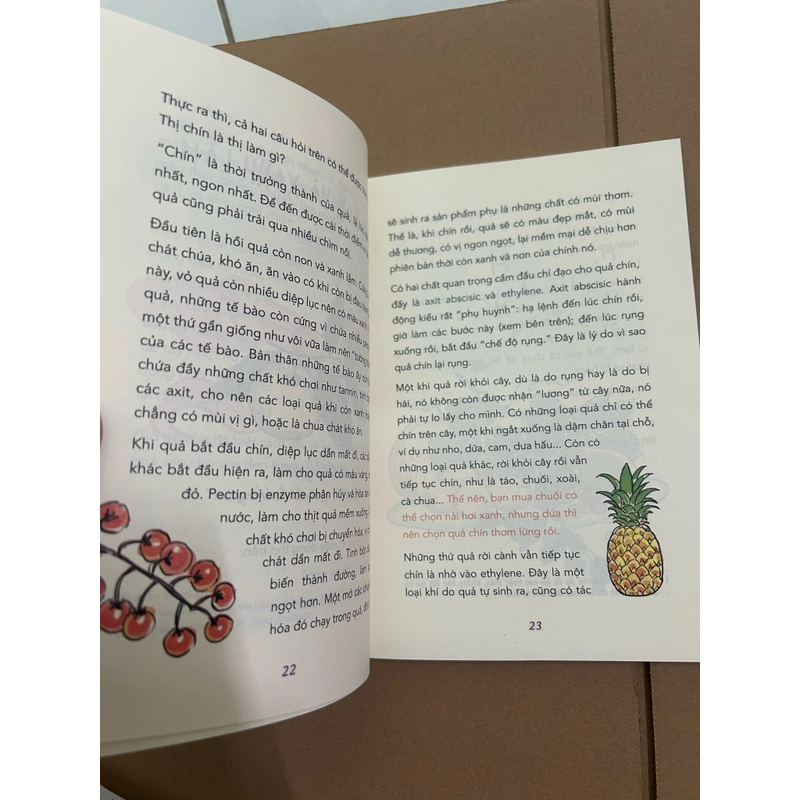 Thực ra thì, cả hai câu hỏi trên có thể được
Thị chín là thị làm gì?
"Chín" là thời trưởng thành của quả, là lúc
nhất, ngon nhất. Để đến được cái thời điểm
quả cũng phải trải qua nhiều chìm nổi.
Đầu tiên là hồi quả còn non và xanh lắm.
chát chúa, khó ăn, ăn vào có khi còn bị đau
này, vỏ quả còn nhiều diệp lục nên có màu xanh
quả, những tế bào còn cứng vì chứa nhiều
một thứ gần giống như vôi vữa làm nên "tường
của các tế bào. Bản thân những tế bào ấy còn
chứa đầy những chất khó chơi như tannin,
các axit, cho nên các loại quả khi còn xanh
chẳng có mùi vị gì, hoặc là chua chát khó ăn.
Khi quả bắt đầu chín, diệp lục dần mất đi, các
khác bắt đầu hiện ra, làm cho quả có màu vàng,
đỏ. Pectin bị enzyme phân hủy và hòa tan
nước, làm cho thịt quả mềm xuống.
chất khó chơi bị chuyển hóa,
chát dần mất đi. Tinh bột
biến thành đường, làm
ngọt hơn. Một mớ các
hóa đó chạy trong quả,
22
sẽ sinh ra sản phẩm phụ là những chất có mùi thơm.
Thế là, khi chín rồi, quả sẽ có màu đẹp mắt, có mùi
dễ thương, có vị ngon ngọt, lại mềm mại dễ chịu hơn
phiên bản thời còn xanh và non của chính nó.
Có hai chất quan trọng cầm đầu chỉ đạo cho quả chín,
đấy là axit abscisic và ethylene. Axit abscisic hành
động kiểu rất "phụ huynh": hạ lệnh đến lúc chín rồi,
giờ làm các bước này (xem bên trên); đến lúc rụng
xuống rồi, bắt đầu "chế độ rụng." Đây là lý do vì sao
quả chín lại rụng.
Một khi quả rời khỏi cây, dù là do rụng hay là do bị
hái, nó không còn được nhận "lương" từ cây nữa, nó
phải tự lo lấy cho mình. Có những loại quả chỉ có thể
chín trên cây, một khi ngắt xuống là dậm chân tại chỗ,
ví dụ như nho, dứa, cam, dưa hấu... Còn có
những loại quả khác, rời khỏi cây rồi vẫn
tiếp tục chín, như là táo, chuối, xoài,
cà chua... Thế nên, bạn mua chuối có
thể chọn nải hơi xanh, nhưng dứa thì
nên chọn quả chín thơm lừng rồi.
Những thứ quả rời cành vẫn tiếp tục
chín là nhờ vào ethylene. Đây là một
loại khí do quả tự sinh ra, cũng có tác
23